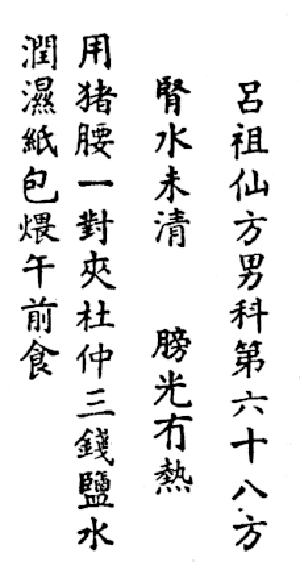 呂祖仙方男科第六十八方
腎水未清　膀光冇熱
用猪腰一對夾杜仲三錢鹽水
潤濕紙包煨午前食